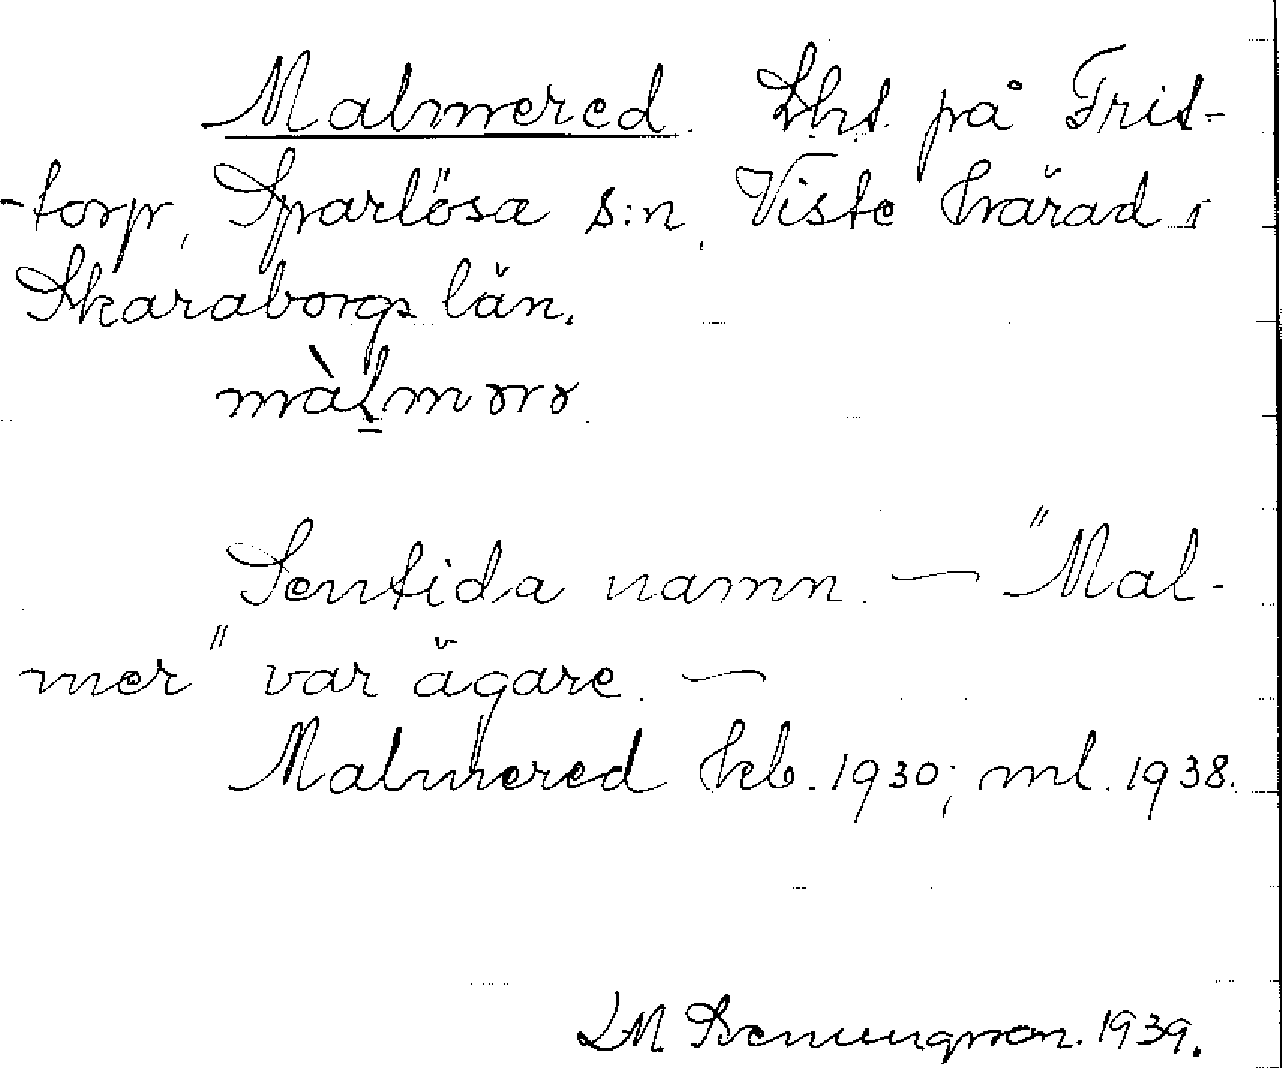 Malmered. Lht. på Frid-
-torp, Sparlösa s:n, Viste härad,
Skaraborgs län.
màlmərə.
Sentida namn. — "Mal-
mer" var ägare. —
Malmered hfb. 1930; ml. 1938.
1939.